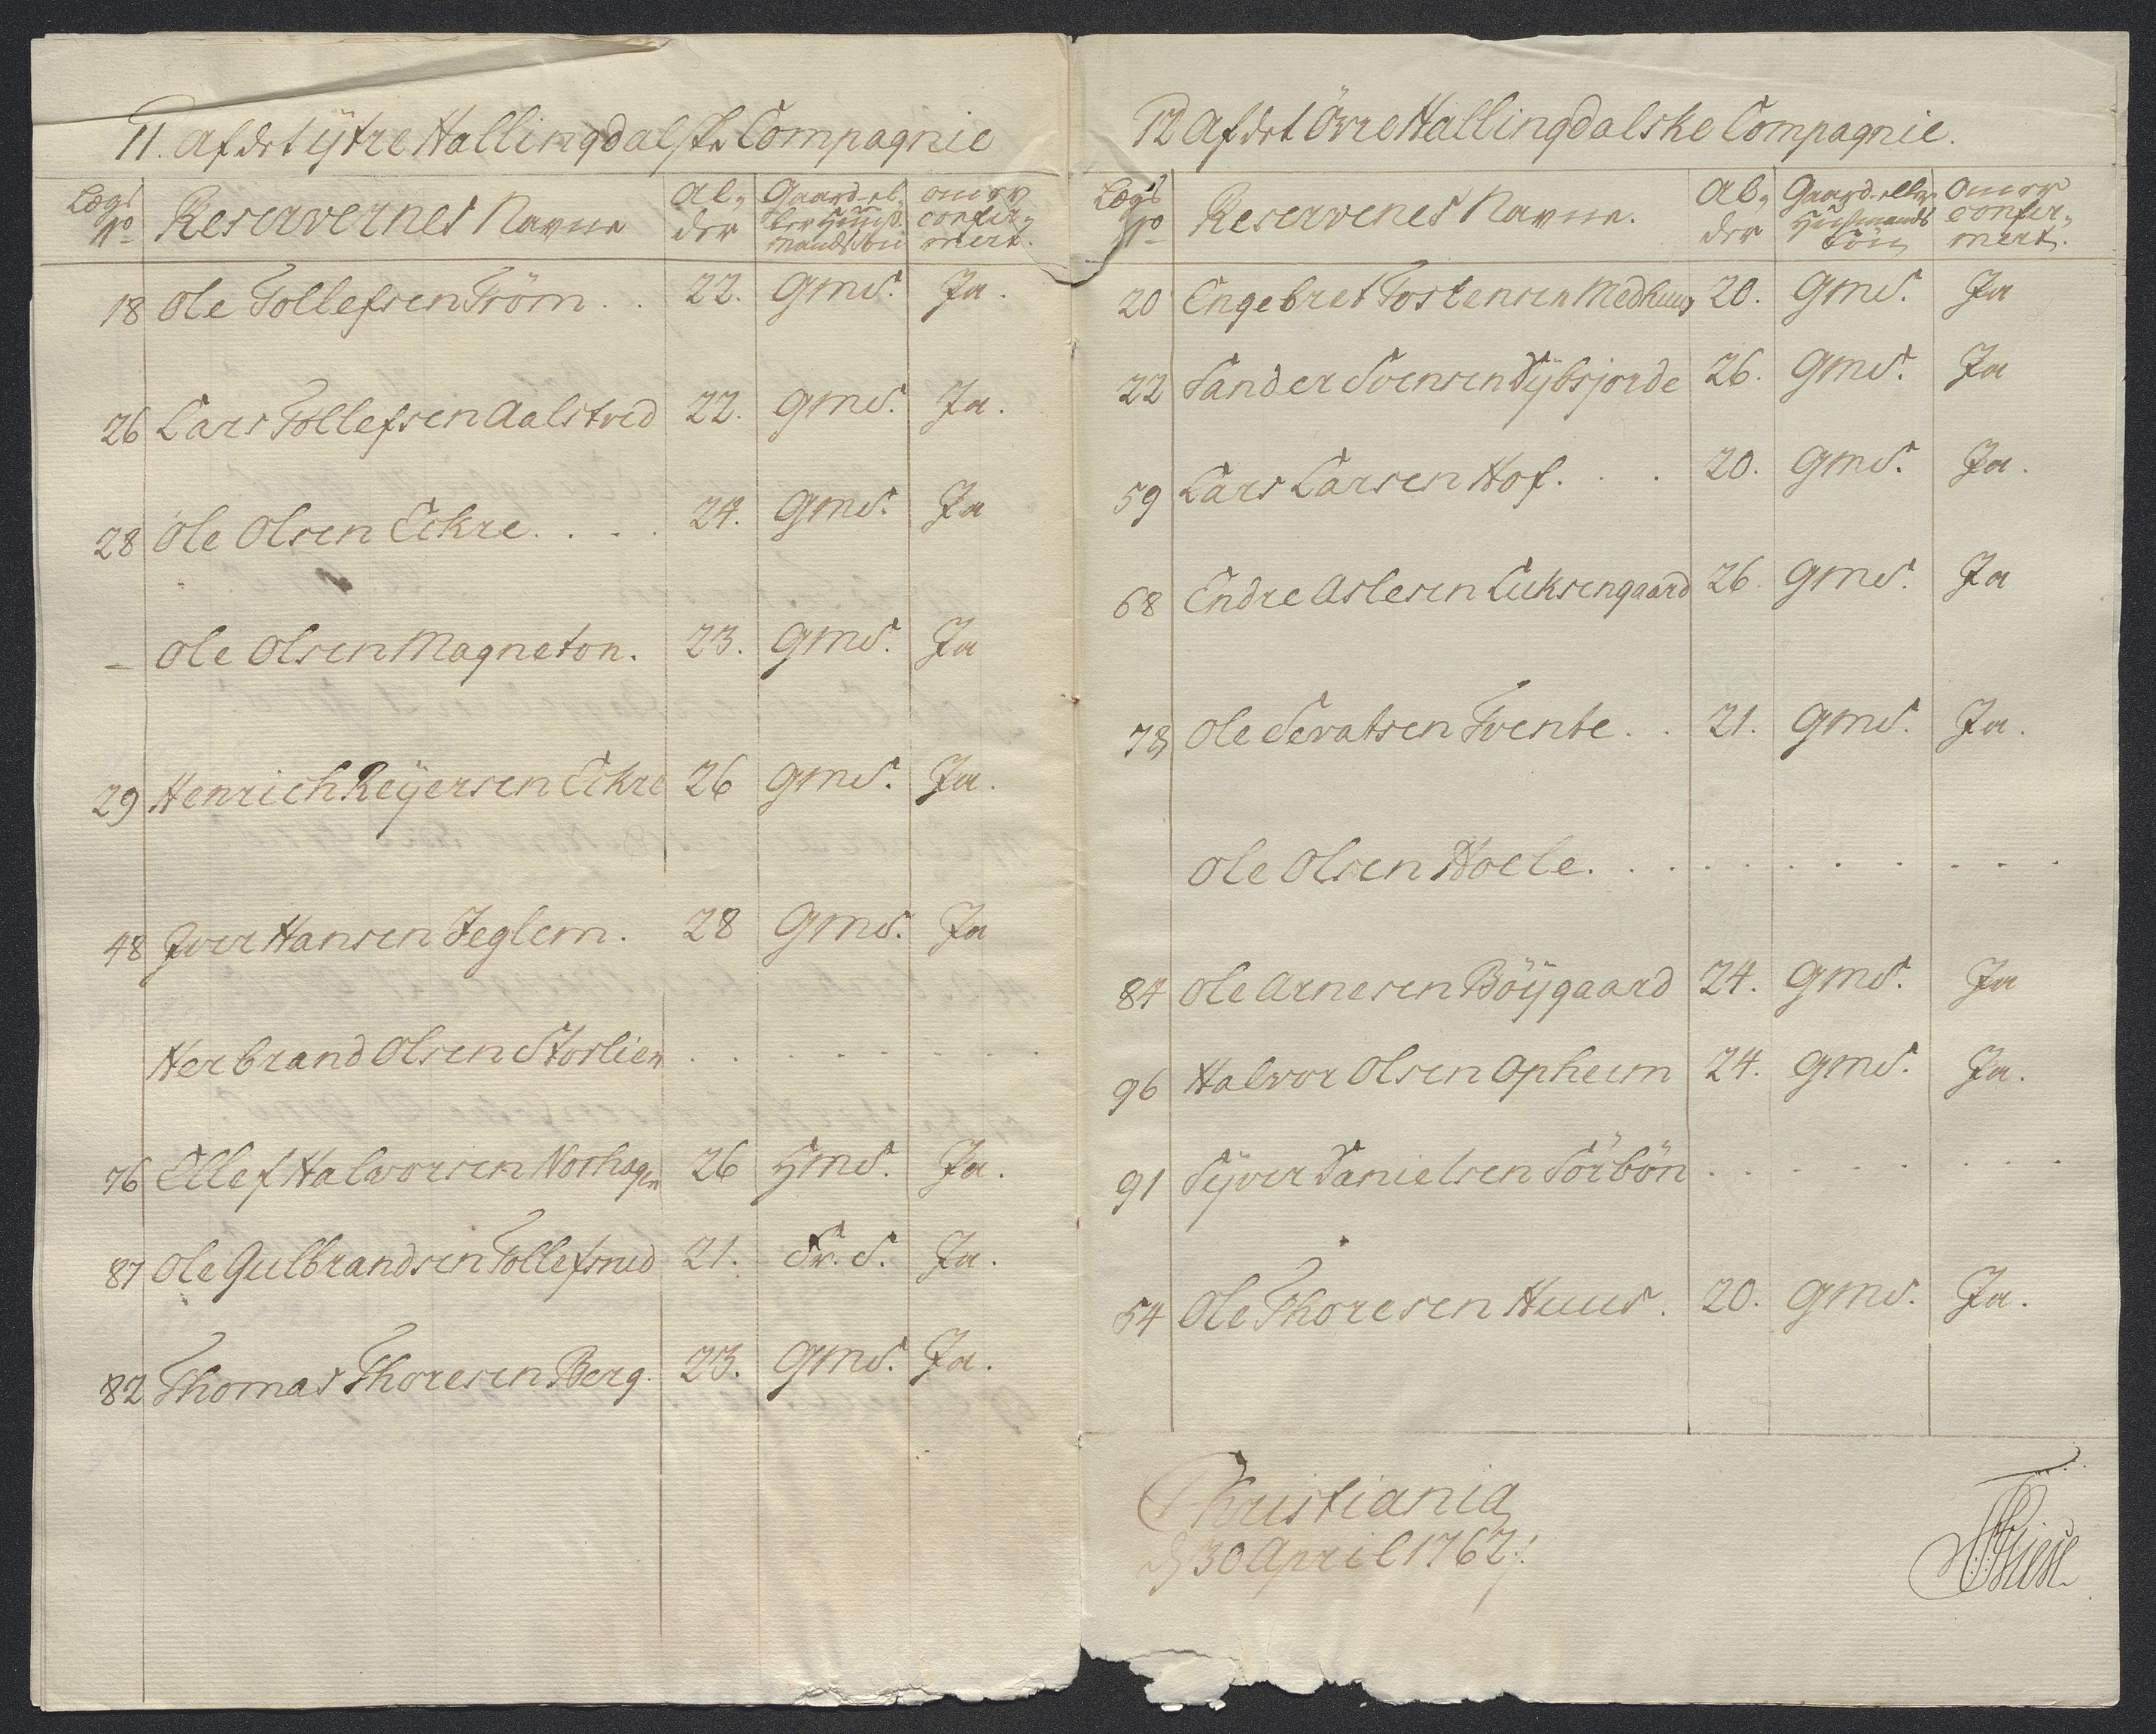 11. af det ÿtre Hallingdalske Compagnie
Lægs No | Reservernes Navne | Al,, der | Gaard-el,, ler Huus mands Sön | om er confir,, mert.
18 Ole Tollefsen Tröm . . 22. GmS. Ja.
26 Lars Tollefsen Aalstved 22. GmS. Ja.
28 Ole Olsen Eckre . . . . 24. GmS. Ja
– Ole Olsen Magneton. 23. GmS. Ja
29 Henrich Reÿersen Eckre 26 GmS. Ja.
48 Iver Hansen Jeglem. 28 GmS. Ja
Herbrand Olsen Storlien . . . . . . . . .
76 Ellef Halvorsen Norhagen 26 HmS. Ja.
87 Ole Gulbrandsen Tollefsrud 21. Sr. S. Ja.
82 Thomas Thoresen Berg. 23. GmS. Ja.
12 af det Övre Hallingdalske Compagnie.
Lægs No | Reservenes Navne. | Al,, der | Gaard-eller Husmands Sön | om er confir,, mert.
20 Engebret Tostensen Medhuus 20. GmS. Ja
22 Sander Svensen Sÿbsjorde 26. GmS. Ja
59 Lars Larsen Hof. . . 20. GmS. Ja.
68 Endre Aslesen Luksengaard 26 GmS. Ja
78 Ole Sevatsen Tvente . . 21. GmS. Ja.
Ole Olsen Hoele. . . . . . . . . .
84 Ole Arnesen Böÿgaard 24. GmS. Ja
96 Halvor Olsen Opheim 24. GmS. Ja.
91 Sÿver Danielsen Sörbön . . . . . . . .
54 Ole Thoresen Huus. 20. GmS. Ja.
Christiania
d 30 April 1762.